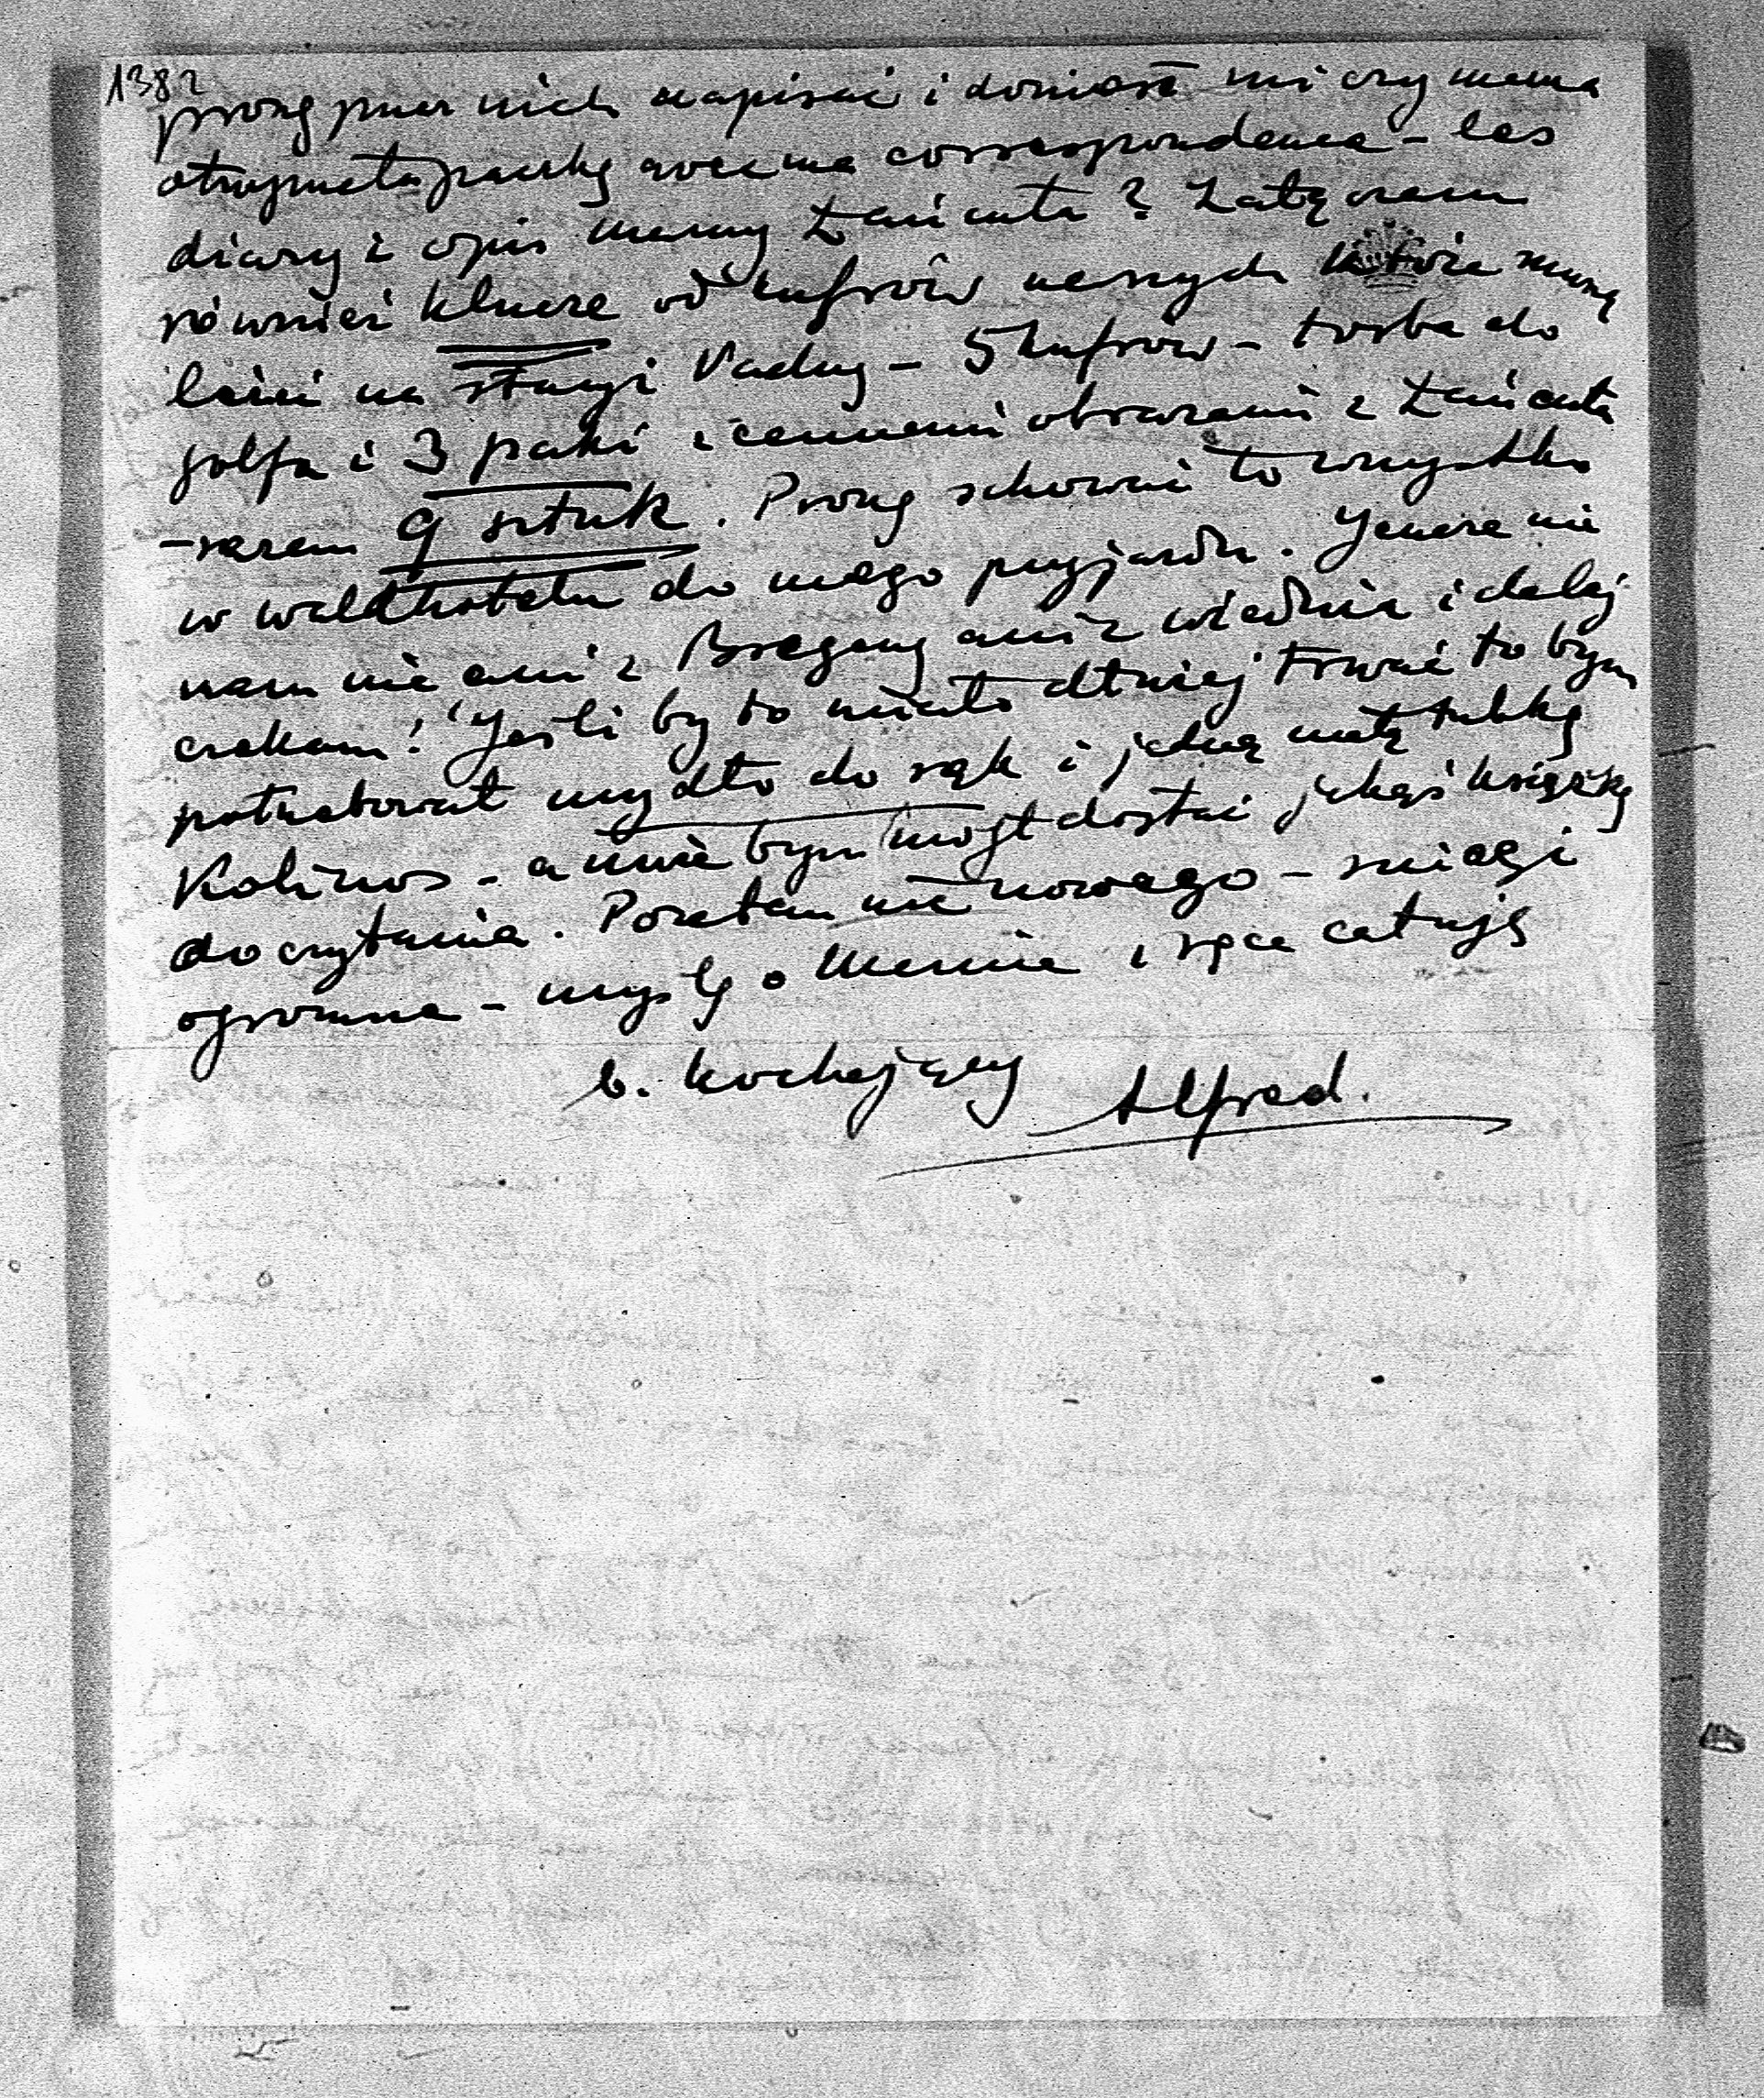 1382
proszę przez nich napisać i donieść mi czy mama
otrzymała paczkę avec ma correspondence - les
diary i opis mamy Łańcuta? Załączam
również klucze od kufrów naszych które muszą
leżeć na stacyi Vaduz - 5 kufrów - torba do
golfa i 3 paki z cennemi obrazami z Łańcuta
- razem 9 sztuk. Proszę schować to wszystko
w waldhotelu do mego przyjazdu. Jeszcze nie
mam nic ani z Bregenz ani z Wiednia i dalej
czekam! Jeśli by to miało dłużej trwać to bym
potrzebował mydło do rąk i jedną małą tubkę
Kolinos - a może bym mógł dostać jakąś książkę
do czytania. Pozatem nic nowego - śniegi
ogromne - myślę o Mamie i ręce całuję
b. kochający Alfred.